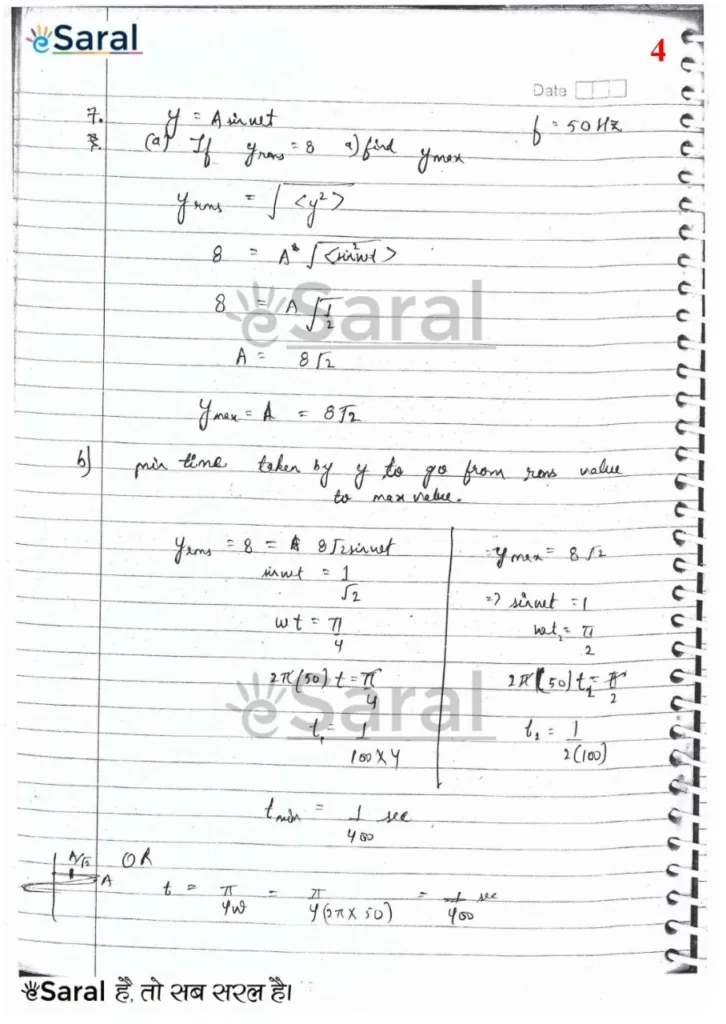 eSaral
4
Date
7. y = A sin wt f = 50 Hz
(a) If yrms = 8 a) find ymax
yrms = √<y²>
8 = A √<sin²wt>
8 = A √1/2
A = 8√2
ymax = A = 8√2
b) min time taken by y to go from rms value
to max value.
yrms = 8 = 8√2 sin wt
sin wt = 1/√2
wt = π/4
2π(50) t = π/4
t₁ = 1/100 X 4
ymax = 8√2
=> sin wt = 1
wt₂ = π/2
2π(50) t₂ = π/2
t₂ = 1/2(100)
tmin = 1/400 sec
A/√2 OR
A
t = π/4w = π/4(2π X 50) = 1/400 sec
eSaral
eSaral
eSaral है, तो सब सरल है।